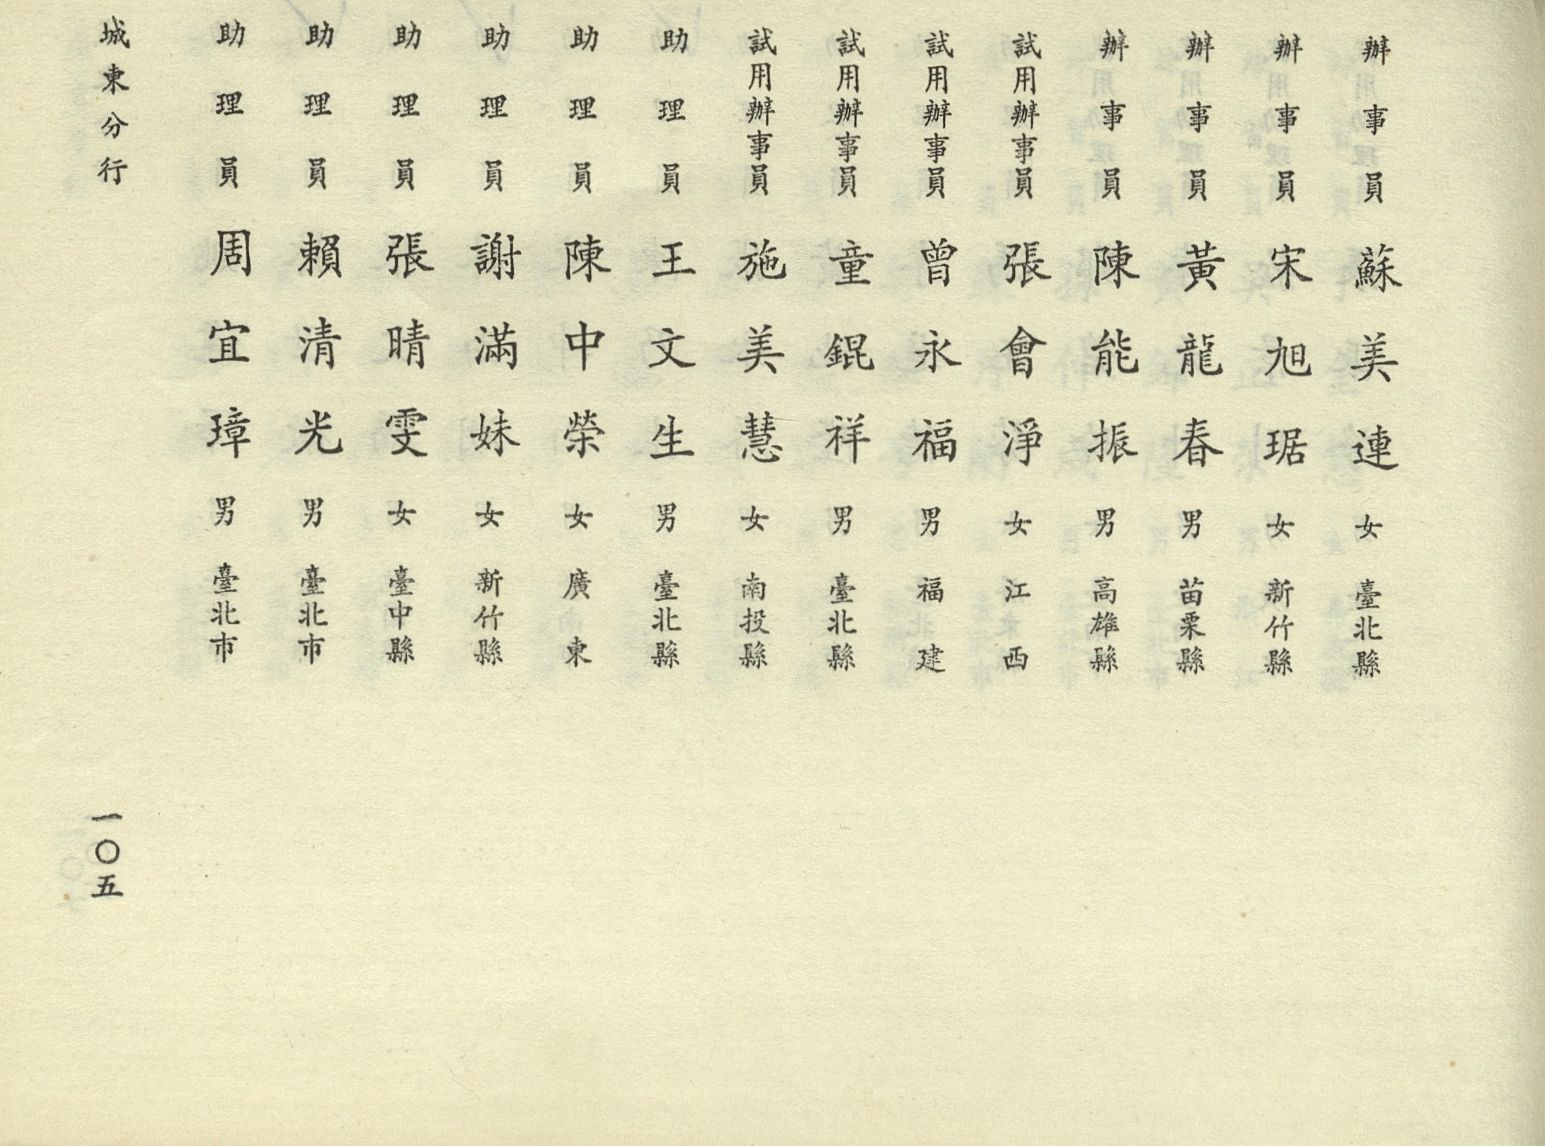 辦事員 蘇美連 女 臺北縣
辦事員 宋旭琚 女 新竹縣
辦事員 黃龍春 男 苗栗縣
辦事員 陳能振 男 高雄縣
試用辦事員 張會淨 女 江西
試用辦事員 曾永福 男 福建
試用辦事員 童錕祥 男 臺北縣
試用辦事員 施美慧 女 南投縣
助理員 王文生 男 臺北縣
助理員 陳中榮 女 廣東
助理員 謝滿妹 女 新竹縣
助理員 張晴雯 女 臺中縣
助理員 賴清光 男 臺北市
助理員 周宜璋 男 臺北市
城東分行
一〇五